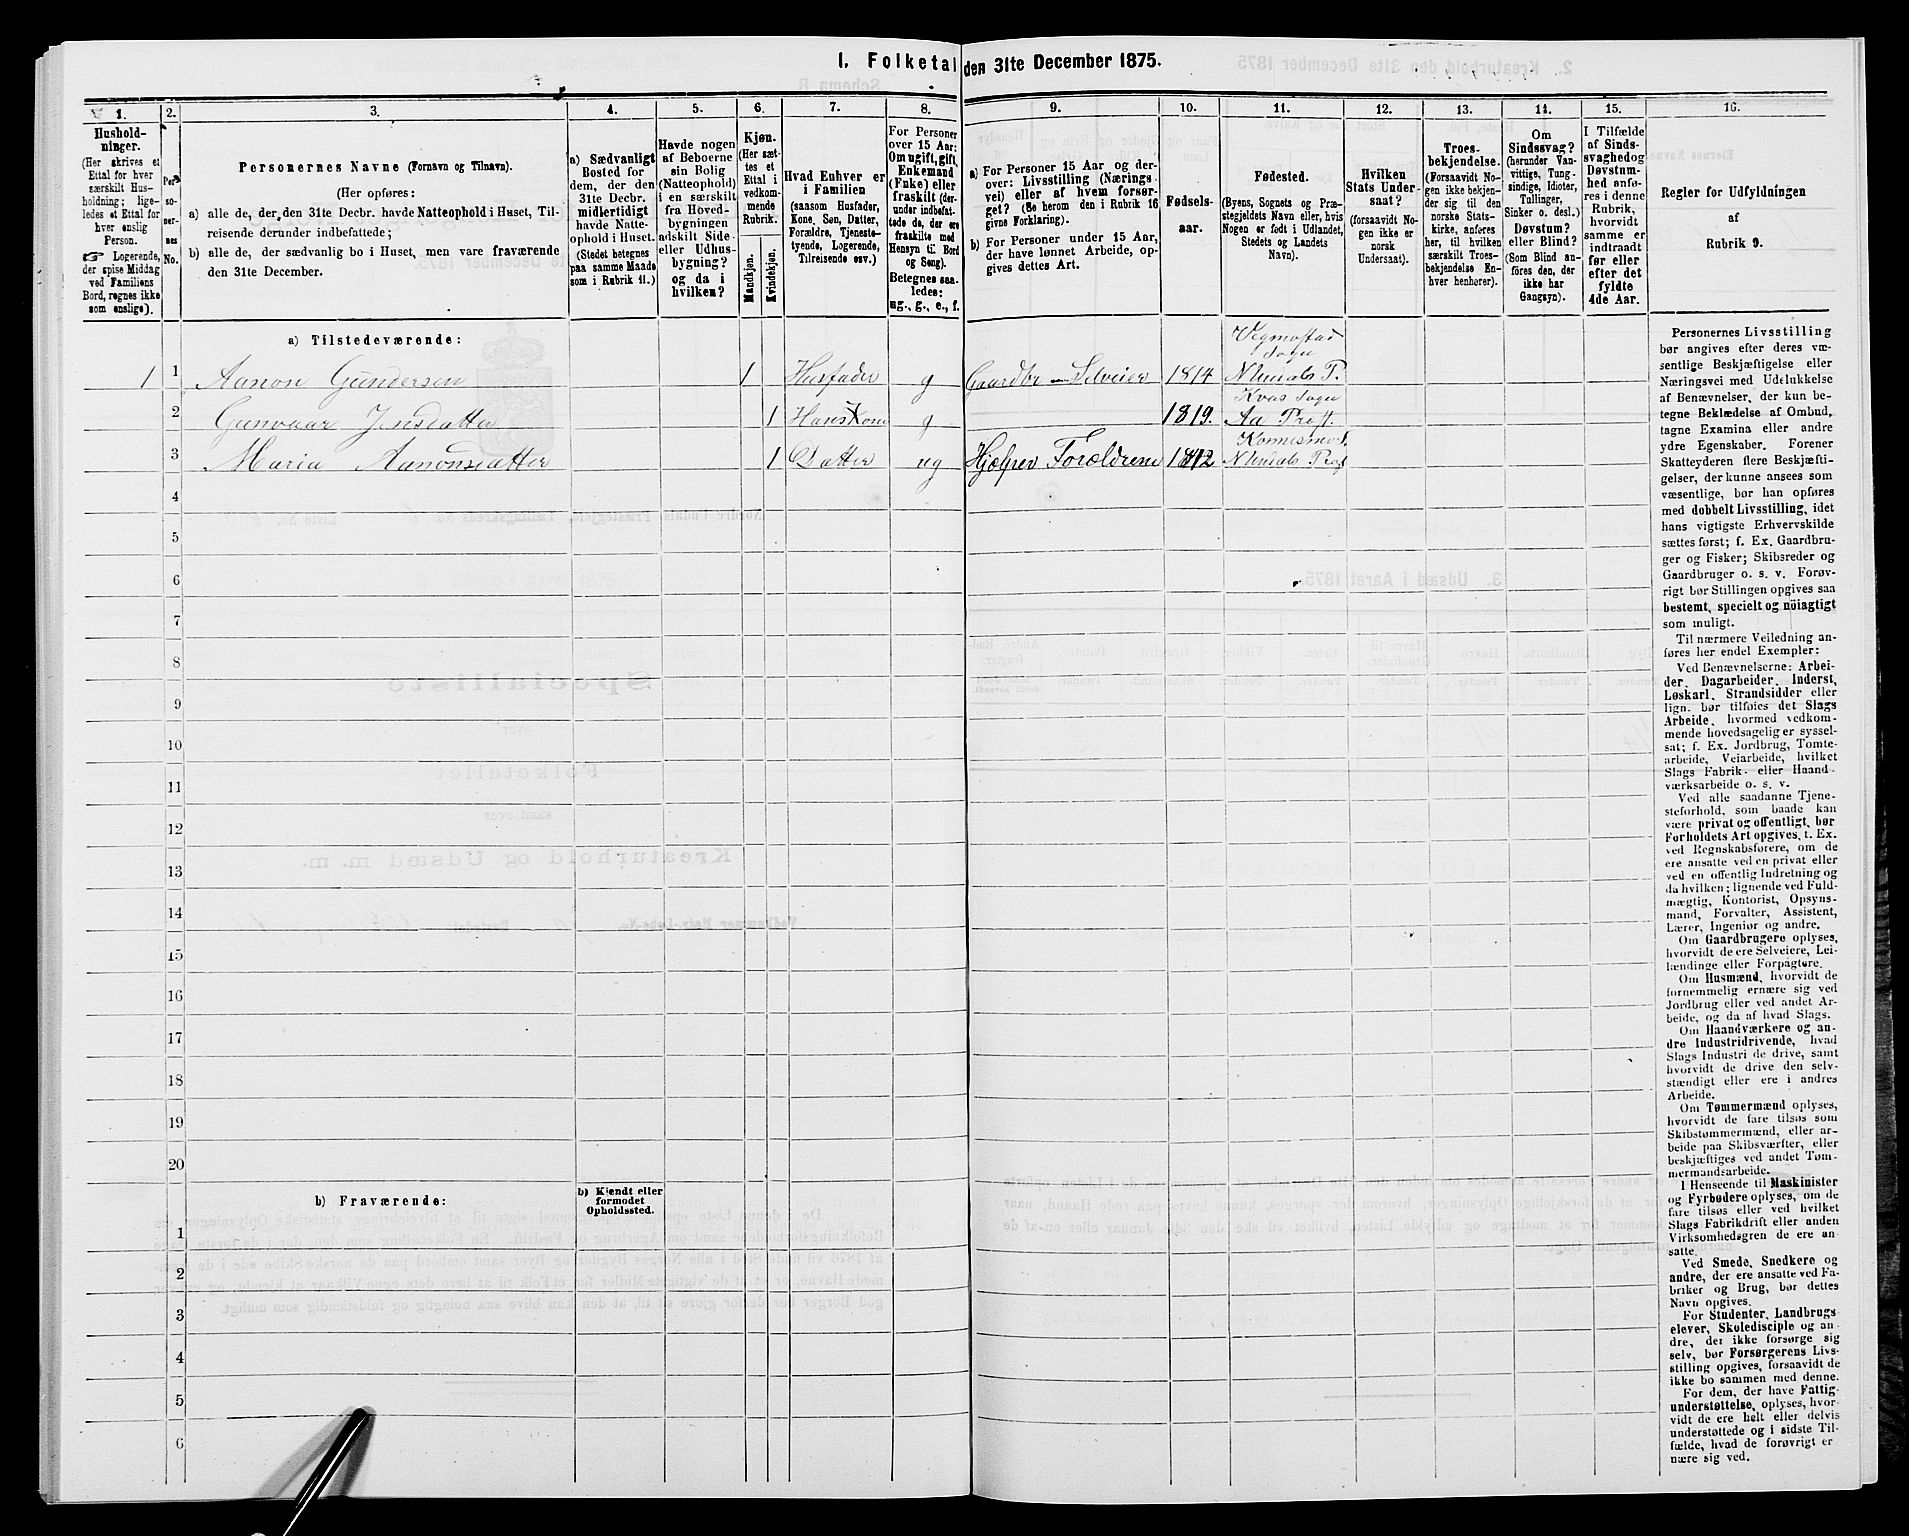 I. Folketal den 31te December 1875.
1. 2. 3. 4. 5. 6. 7. 8. 9. 10. 11. 12. 13. 14. 15. 16.
Hushold-
ninger.
(Her skrives et
Ettal for hver
særskilt Hus-
holdning; lige-
ledes et Ettal for
hver enslig
Person.
☞ Logerende,
der spise Middag
ved Familiens
Bord, regnes ikke
som enslige).
Per
so-
ner-
nes
No.
Personernes Navne (Fornavn og Tilnavn).
(Her opføres:
a) alle de, der den 31te Decbr. havde Natteophold i Huset, Til-
reisende derunder indbefattede;
b) alle de, der sædvanlig bo i Huset, men vare fraværende
den 31te December.
a) Sædvanligt
Bosted for
dem, der den
31te Decbr.
midlertidigt
havde Natte-
ophold i Huset.
(Stedet betegnes
paa samme Maade
som i Rubrik 11.)
Havde nogen
af Beboerne
sin Bolig
(Natteophold)
i en særskilt
fra Hoved-
bygningen
adskilt Side-
eller Udhus-
bygning?
og da i
hvilken?
Kjøn.
(Her sæt-
tes et
Ettal i
vedkom-
mende
Rubrik.
Mandkjøn.
Kvindekjøn.
Hvad Enhver er
i Familien
(saasom Husfader,
Kone, Søn, Datter,
Forældre, Tjeneste-
tyende, Logerende,
Tilreisende osv.)
For Personer
over 15 Aar:
Om ugift, gift,
Enkemand
(Enke) eller
fraskilt (der-
under indbefat-
tede de, der ere
fraskilte med
Hensyn til Bord
og Seng).
Betegnes saa-
ledes:
ug., g., e., f.
a) For Personer 15 Aar og der-
over: Livsstilling (Nærings-
vei) eller af hvem forsør-
get? (Se herom den i Rubrik 16
givne Forklaring).
b) For Personer under 15 Aar,
der have lønnet Arbeide, op-
gives dettes Art.
Fødsels-
aar.
Fødested.
(Byens, Sognets og Præ-
stegjeldets Navn eller, hvis
Nogen er født i Udlandet,
Stedets og Landets
Navn).
Hvilken
Stats Under-
saat?
(forsaavidt No-
gen ikke er
norsk
Undersaat).
Troes-
bekjendelse.
(Forsaavidt No-
gen ikke bekjen-
der sig til den
norske Stats-
kirke, anføres
her, til hvilken
særskilt Troes-
bekjendelse En-
hver henhører).
Om
Sindssvag?
(herunder Van-
vittige, Tung-
sindige, Idioter,
Tullinger,
Sinker o. desl.)
Døvstum?
eller Blind?
(Som Blind an-
føres den, der
ikke har
Gangsyn).
I Tilfælde
af Sinds-
svaghed og
Døvstum-
hed anfø-
res i denne
Rubrik,
hvorvidt
samme er
indtraadt
før eller
efter det
fyldte
4de Aar.
Regler for Udfyldningen
af
Rubrik 9.
a) Tilstedeværende:
Vegmostad
Sogn
1 1 Aanon Gundersen 1 Husfader g Gaardbr Selveier 1814 N Undals P.
Kvas Sogn
2 Gunvaar Jensdatter 1 Hans Kone g 1819. Aa Præst.
Konnesmo S.
3 Maria Aanonsdatter 1 Datter ug Hjælper Forældrene N Undals Præst
4
5
6
7
8
9
10
11
12
13
14
15
16
17
18
19
20
b) Fraværende:
b) Kjendt eller
formodet
Opholdssted.
1
2
3
4
5
6
Personernes Livsstilling
bør angives efter deres væ-
sentlige Beskjæftigelse eller
Næringsvei med Udelukkelse
af Benævnelser, der kun be-
tegne Beklædelse af Ombud,
tagne Examina eller andre
ydre Egenskaber. Forener
Skatteyderen flere Beskjæfti-
gelser, der kunne ansees som
væsentlige, bør han opføres
med dobbelt Livsstilling, idet
hans vigtigste Erhvervskilde
sættes først; f. Ex. Gaardbru-
ger og Fisker; Skibsreder og
Gaardbruger o. s. v. Forøv-
rigt bør Stillingen opgives saa
bestemt, specielt og nöiagtigt
som muligt.
Til nærmere Veiledning an-
føres her endel Exempler:
Ved Benævnelserne: Arbei-
der, Dagarbeider, Inderst,
Løskarl, Strandsidder eller
lign. bør tilføies det Slags
Arbeide, hvormed vedkom-
mende hovedsagelig er syssel-
sat; f. Ex. Jordbrug, Tomte-
arbeide, Veiarbeide, hvilket
Slags Fabrik- eller Haand-
værksarbeide o. s. v.
Ved alle saadanne Tjene-
steforhold, som baade kan
være privat og offentligt, bør
Forholdets Art opgives, t. Ex.
ved Regnskabsførere, om de
ere ansatte ved en privat eller
ved en offentlig Indretning og
da hvilken; lignende ved Fuld-
mægtig, Kontorist, Opsyns-
mand, Forvalter, Assistent,
Lærer, Ingeniør og andre.
Om Gaardbrugere oplyses,
hvorvidt de ere Selveiere, Lei-
lændinge eller Forpagtere.
Om Husmænd, hvorvidt de
fornemmelig ernære sig ved
Jordbrug eller ved andet Ar-
beide, og da af hvad Slags.
Om Haandværkere og an-
dre Industridrivende, hvad
Slags Industri de drive, samt
hvorvidt de drive den selv-
stændigt eller ere i andres
Arbeide.
Om Tømmermænd oplyses,
hvorvidt de fare tilsøs som
Skibstømmermænd, eller ar-
beide paa Skibsværfter, eller
beskjæftiges ved andet Tøm-
mermandsarbeide.
I Henseende til Maskinister
og Fyrbødere oplyses, om de
fare tilsøs eller ved hvilket
Slags Fabrikdrift eller anden
Virksomhedsgren de ere an-
satte.
Ved Smede, Snedkere og
andre, der ere ansatte ved Fa-
briker og Brug, bør dettes
Navn opgives.
For Studenter, Landbrugs-
elever, Skoledisciple og an-
dre, der ikke forsørge sig
selv, bør Forsørgerens Livs-
stilling opgives, forsaavidt de
ikke bo sammen med denne.
For dem, der have Fattig-
understøttelse, oplyses, hvor-
vidt de ere helt eller delvis
understøttede og i sidste Til-
fælde, hvad de forøvrigt er-
nære sig ved.